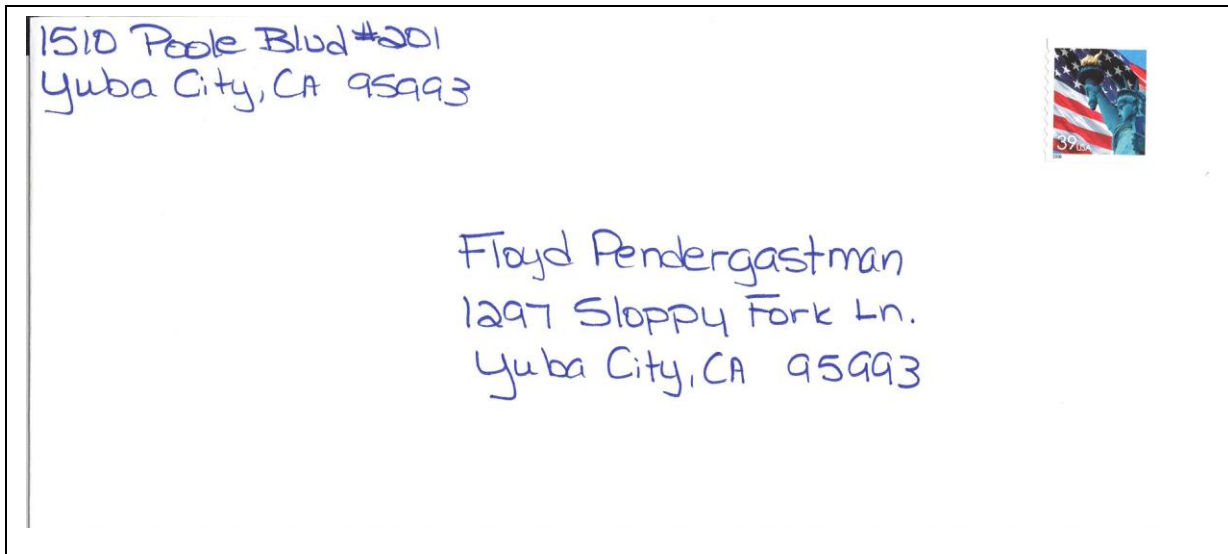 1510 Poole Blvd #201
Yuba City, CA 95993
39 USA
Floyd Pendergastman
1297 Sloppy Fork Ln.
Yuba City, CA 95993